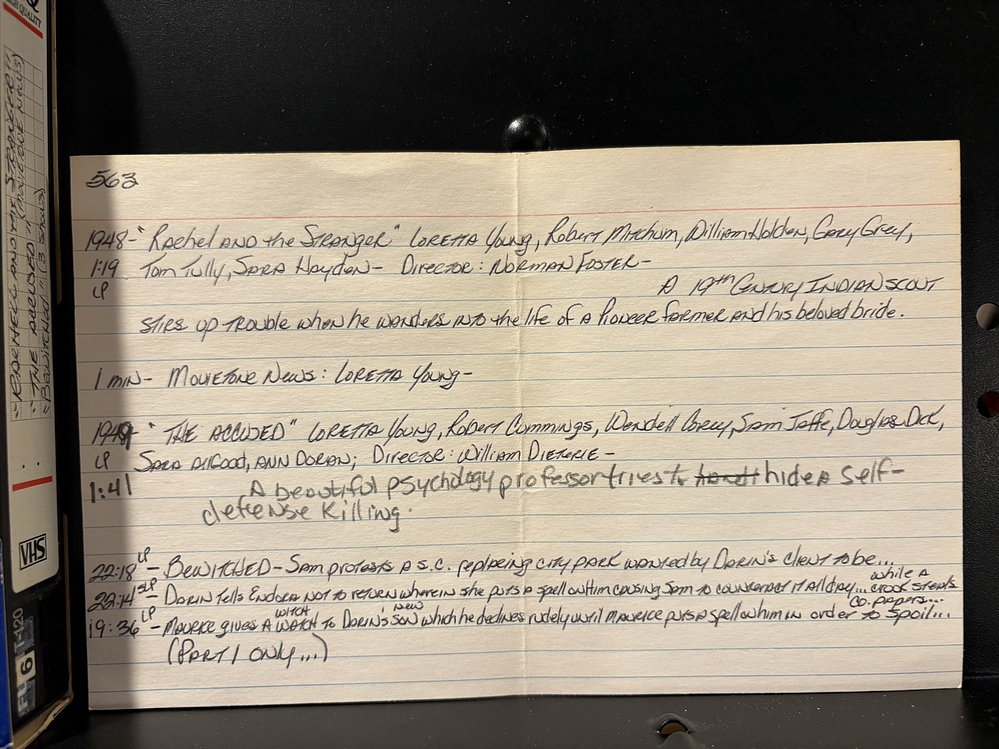 QUALITY
"RACHEL AND THE STRANGER"
(MOVIETONE NEWS)
"THE ACCUSED"
"BEWITCHED" (3 SHOWS)
VHS
T-120
6
563
1948-"Rachel AND the STRANGER" LORETTA YOUNG, Robert Mitchum, William Holden, GARY GREY,
1:19 Tom Tully, SARA HAYDEN- Director: NORMAN FOSTER-
LP A 19th CENTURY INDIAN SCOUT
STIRS UP TROUBLE when he WANDERS INTO the life of A Pioneer farmer AND his beloved bride.
1 min- MOVIETONE NEWS: LORETTA YOUNG-
1949-"THE ACCUSED" LORETTA YOUNG, Robert Cummings, Wendell Corey, SAM Jaffe, Douglas Dick,
LP SARA AllGOOD, ANN DORAN; Director: William DIETERLE-
1:41 A beautiful psychology professor tries to hide a self-
defense killing.
22:18 LP- BEWITCHED-SAM protests A S.C. replacing city PARK wanted by DARIN's client to be...
22:14 SLP- DARIN tells ENDORA NOT to return wherein she puts A spell on him causing SAM to counteract it all day... while A crook steals
co. papers...
19:36 LP- MAURICE gives A WATCH to DARIN'S new SON which he declines rudely until MAURICE puts A spell on him in order to spoil...
(PART 1 ONLY...)